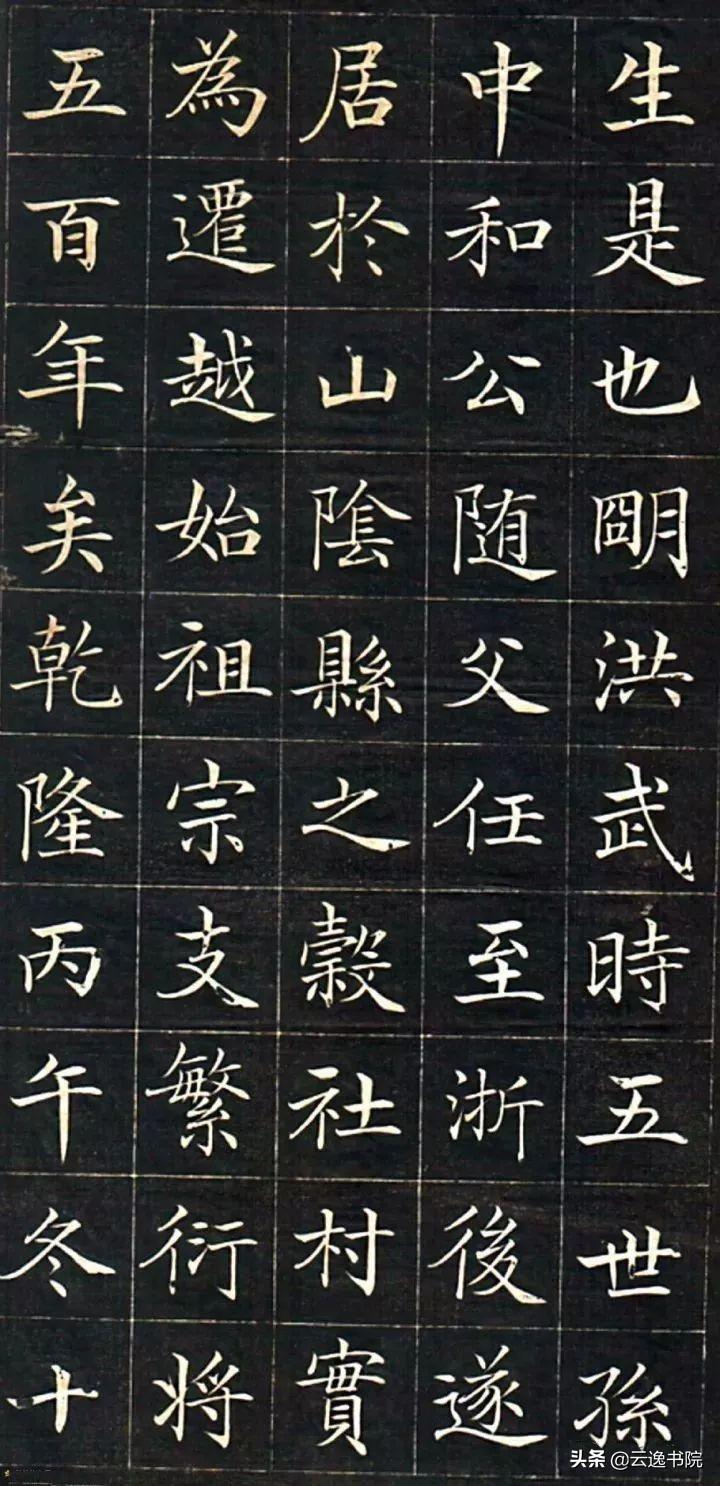 生是也朙洪武時五世孫
中和公随父任至浙後遂
居於山陰縣之穀社村實
為遷越始祖宗支繁衍将
五百年矣乾隆丙午冬十
头条 @云逸书院